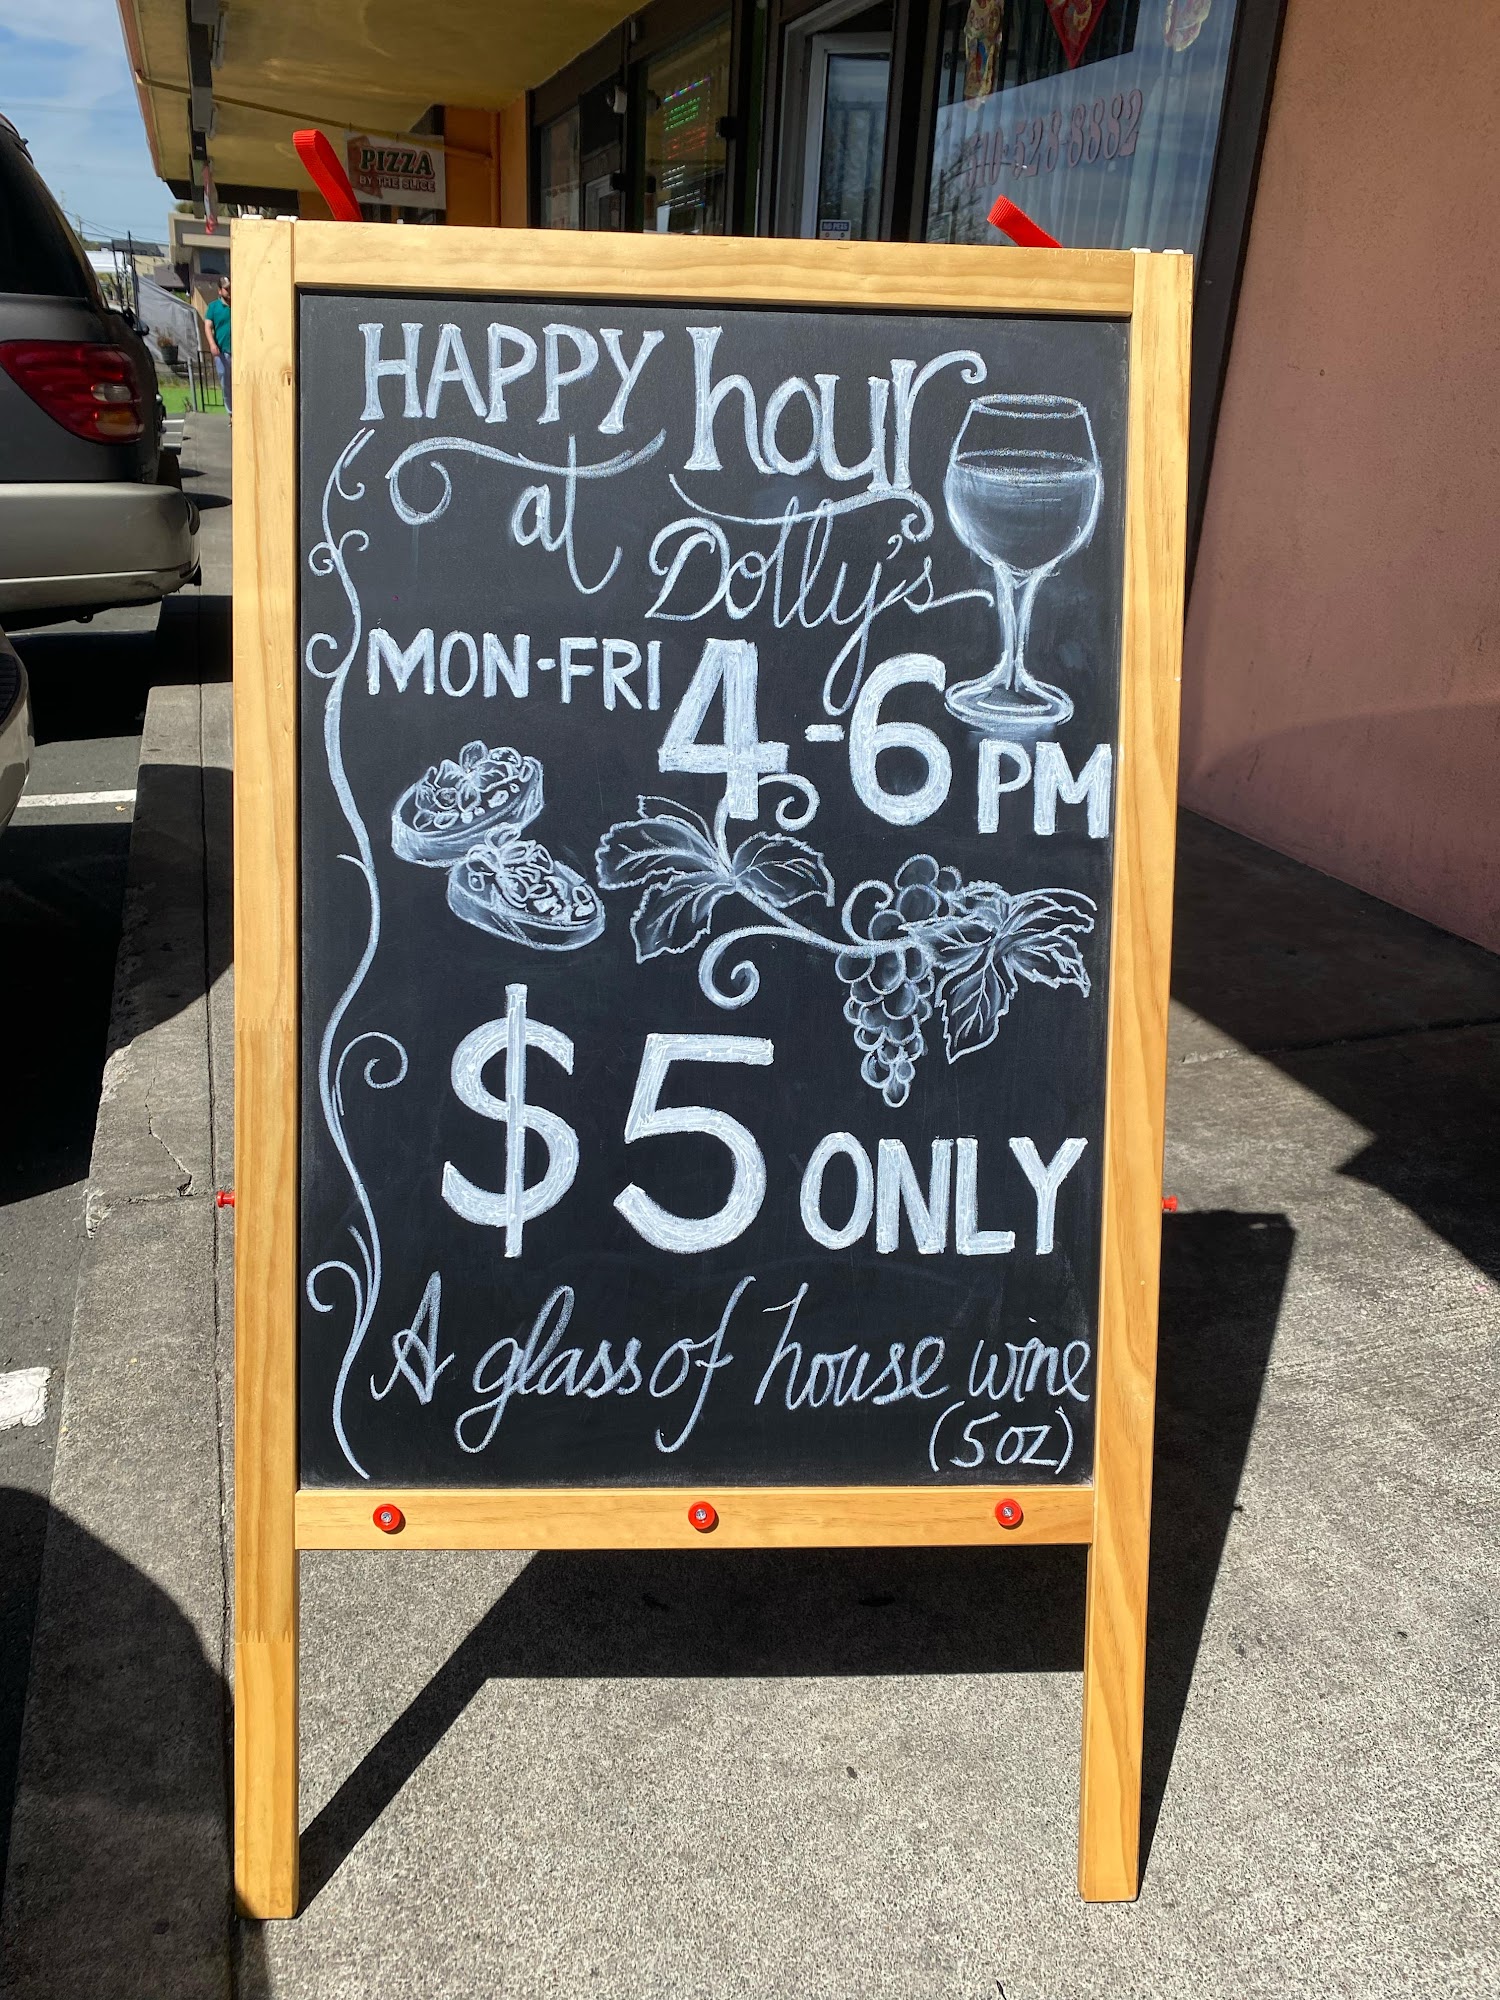 PIZZA
BY THE SLICE
510-528-8882
HAPPY hour
at Dolly's
MON-FRI 4-6 PM
$5 ONLY
A glass of house wine
(5oz)